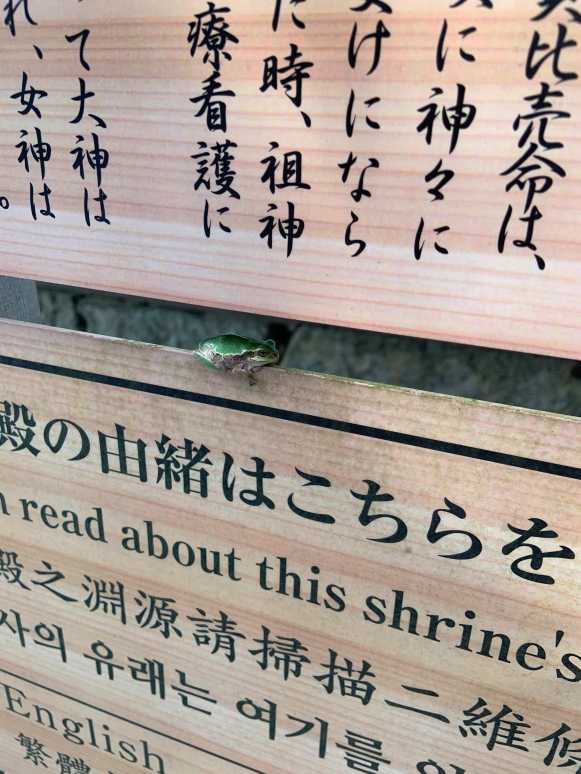 比売命は、
に神々に
けになら
た時、祖神
療看護に
て大神は
れ、女神は
。
殿の由緒はこちらを
read about this shrine's
殿之淵源請掃描二維
사의 유래는 여기를
English
繁體